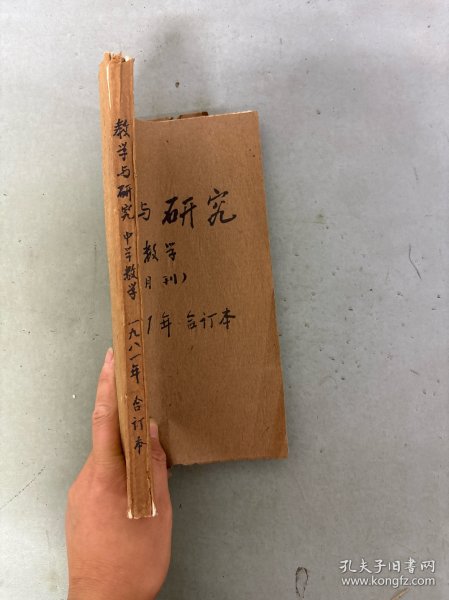 教学与研究 中学数学 一九八一年 合订本
与研究
数学
月刊）
1年 合订本
孔夫子旧书网
www.kongfz.com